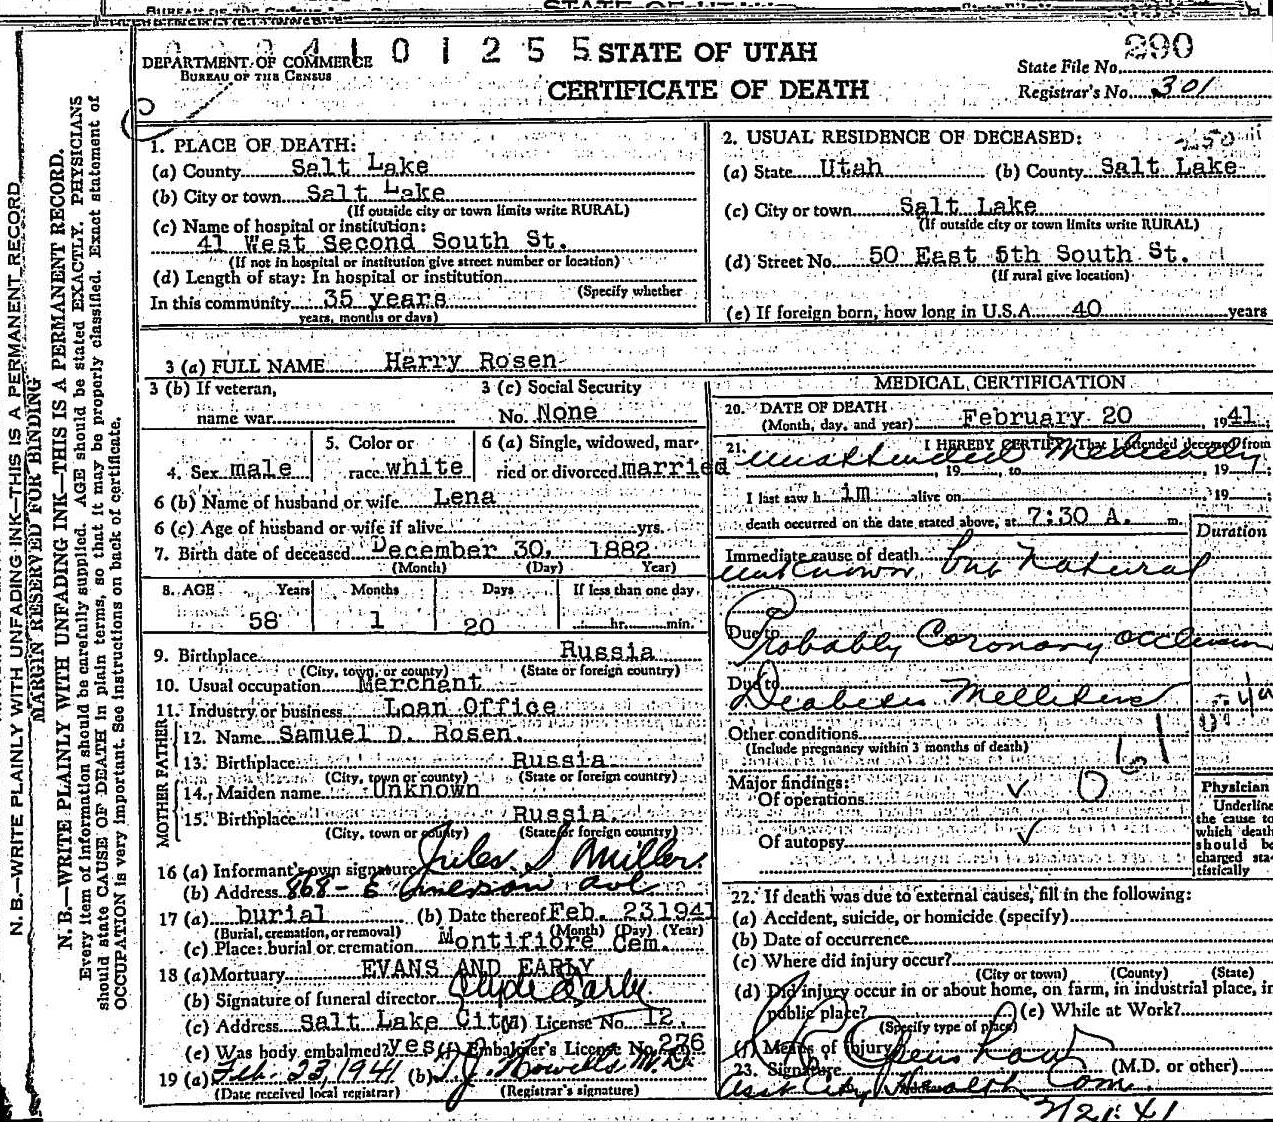 STATE OF UTAH
CERTIFICATE OF DEATH
DEPARTMENT OF COMMERCE
BUREAU OF THE CENSUS
4 1 0 1 2 5 5
State File No. 290
Registrar's No. 301
N. B.—WRITE PLAINLY WITH UNFADING INK—THIS IS A PERMANENT RECORD
MARGIN RESERVED FOR BINDING
N. B.—WRITE PLAINLY WITH UNFADING INK—THIS IS A PERMANENT RECORD.
Every item of information should be carefully supplied. AGE should be stated EXACTLY. PHYSICIANS
should state CAUSE OF DEATH in plain terms, so that it may be properly classified. Exact statement of
OCCUPATION is very important. See instructions on back of certificate.
1. PLACE OF DEATH:
(a) County Salt Lake
(b) City or town Salt Lake
(If outside city or town limits write RURAL)
(c) Name of hospital or institution:
41 West Second South St.
(If not in hospital or institution give street number or location)
(d) Length of stay: In hospital or institution
(Specify whether
In this community 35 years
years, months or days)
2. USUAL RESIDENCE OF DECEASED: 250
(a) State Utah (b) County Salt Lake
(c) City or town Salt Lake
(If outside city or town limits write RURAL)
(d) Street No. 50 East 5th South St.
(If rural give location)
(e) If foreign born, how long in U.S.A. 40 years
3 (a) FULL NAME Harry Rosen
3 (b) If veteran,
name war
3 (c) Social Security
No. None
4. Sex male
5. Color or
race white
6 (a) Single, widowed, mar-
ried or divorced married
6 (b) Name of husband or wife Lena
6 (c) Age of husband or wife if alive yrs.
7. Birth date of deceased December 30, 1882
(Month) (Day) Year)
8. AGE Years Months Days If less than one day
58 1 20 hr. min.
9. Birthplace Russia
(City, town, or county) (State or foreign country)
10. Usual occupation Merchant
11. Industry or business Loan Office
FATHER
12. Name Samuel D. Rosen.
13. Birthplace Russia
(City, town or county) (State or foreign country)
MOTHER
14. Maiden name Unknown
15. Birthplace Russia
(City, town or county) (State or foreign country)
16 (a) Informant's own signature Jules S Miller
(b) Address 868- E Emerson ave
17 (a) burial (b) Date thereof Feb. 23 1941
(Burial, cremation, or removal) (Month) (Day) (Year)
(c) Place: burial or cremation Montifiore Cem.
18 (a) Mortuary EVANS AND EARLY
(b) Signature of funeral director Clyde Early
(c) Address Salt Lake City (d) License No. 12.
(e) Was body embalmed? yes (f) Embalmer's License No. 276
19 (a) Feb. 23, 1941 (b) T.J. Howells M.D.
(Date received local registrar) (Registrar's signature)
MEDICAL CERTIFICATION
20. DATE OF DEATH
(Month, day, and year) February 20 1941
21. I HEREBY CERTIFY, That I attended deceased from
unattended Medically
, 19 , to , 19 ;
I last saw h im alive on , 19 ;
death occurred on the date stated above, at 7:30 A. m.
Duration
Immediate cause of death
unknown but Natural
Due to
Probably Coronary occlusion
Due to
Diabetes Mellitus
Other conditions
(Include pregnancy within 3 months of death)
61
Major findings:
Of operations
Of autopsy
Physician
Underline
the cause to
which death
should be
charged sta-
tistically
22. If death was due to external causes, fill in the following:
(a) Accident, suicide, or homicide (specify)
(b) Date of occurrence
(c) Where did injury occur?
(City or town) (County) (State)
(d) Did injury occur in or about home, on farm, in industrial place, in
public place? (e) While at Work?
(Specify type of place)
(f) Means of Injury
23. Signature (M.D. or other)
Asst City Health Com.
2/21.41